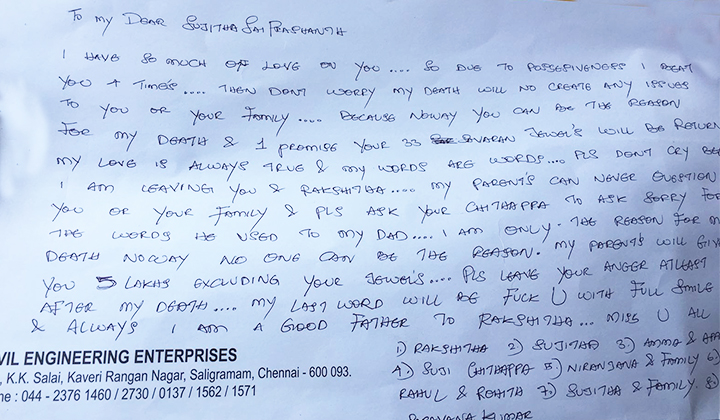 To my Dear Sujitha Sai Prashanth
I have so much off love on you.... So due to possesivenes I beat
you 4 times.... Then dont worry my death will no create any issues
to you or your family.... Because noway you can be the reason
for my death & I promise your 33 savaran jewel's will be return
my love is always true & my words are words.... Pls dont cry be
I am leaving you & Rakshitha.... my parent's can never question
you or your family & pls ask your chithappa to ask sorry for
the words he used to my dad.... I am only the reason for m
death noway no one can be the reason. my parent's will give
you 5 lakhs excluding your jewel's.... Pls leave your anger atleast
after my death.... my last word will be fuck U with full smile
& always I am a good father to Rakshitha... miss U all
1) Rakshitha 2) Sujitha 3) Amma & Appa
4) Suji chithappa 5) Niranjana & family 6)
Rahul & Rohith 7) Sujitha & family. 8)
Kumar
VIL ENGINEERING ENTERPRISES
, K.K. Salai, Kaveri Rangan Nagar, Saligramam, Chennai - 600 093.
ne : 044 - 2376 1460 / 2730 / 0137 / 1562 / 1571